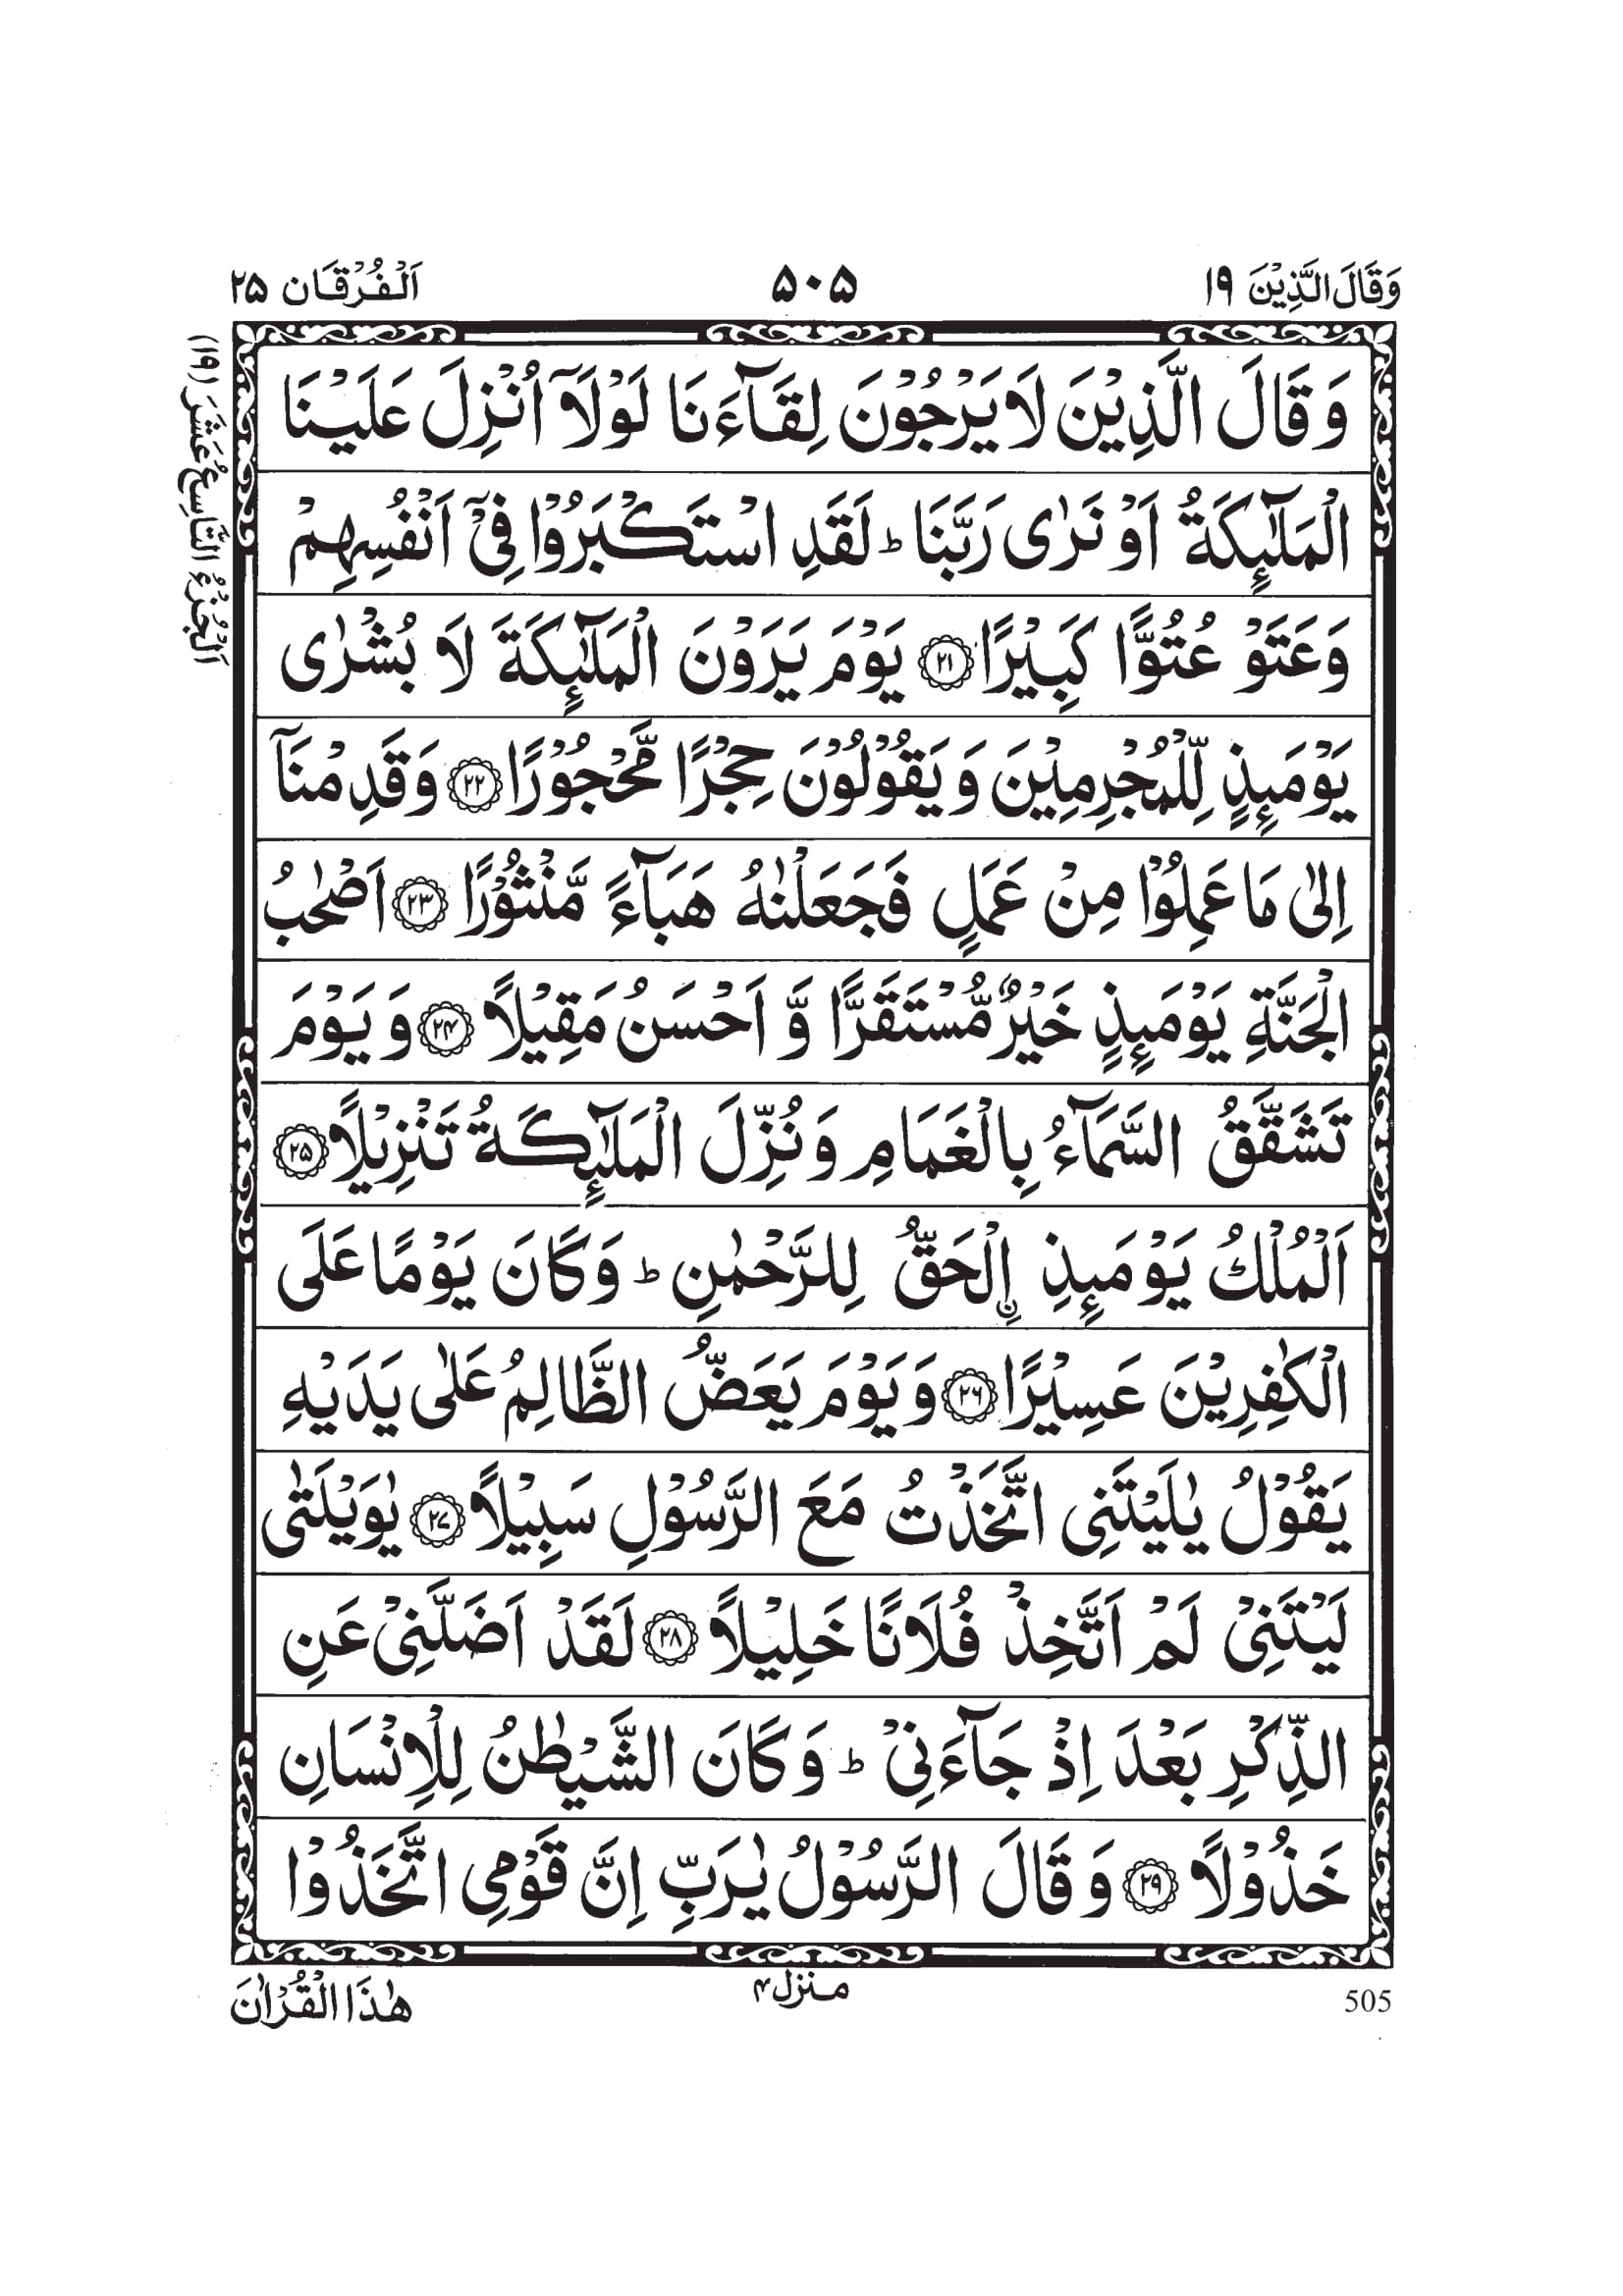 وَقَالَ الَّذِيْنَ ١٩
۵۰۵
اَلْفُرْقَان ۲۵
اَلْجُزْءُ التَّاسِعُ عَشَرَ (۱۹)
وَقَالَ الَّذِيْنَ لَا يَرْجُوْنَ لِقَآءَنَا لَوْلَآ اُنْزِلَ عَلَيْنَا
الْمَلٰٓئِكَةُ اَوْ نَرٰى رَبَّنَا ؕ لَقَدِ اسْتَكْبَرُوْا فِىْٓ اَنْفُسِهِمْ
وَعَتَوْ عُتُوًّا كَبِيْرًا ۲۱ يَوْمَ يَرَوْنَ الْمَلٰٓئِكَةَ لَا بُشْرٰى
يَوْمَئِذٍ لِّلْمُجْرِمِيْنَ وَ يَقُوْلُوْنَ حِجْرًا مَّحْجُوْرًا ۲۲ وَقَدِمْنَآ
اِلٰى مَا عَمِلُوْا مِنْ عَمَلٍ فَجَعَلْنٰهُ هَبَآءً مَّنْثُوْرًا ۲۳ اَصْحٰبُ
الْجَنَّةِ يَوْمَئِذٍ خَيْرٌ مُّسْتَقَرًّا وَّ اَحْسَنُ مَقِيْلًا ۲۴ وَ يَوْمَ
تَشَقَّقُ السَّمَآءُ بِالْغَمَامِ وَ نُزِّلَ الْمَلٰٓئِكَةُ تَنْزِيْلًا ۲۵
اَلْمُلْكُ يَوْمَئِذِ ِۨالْحَقُّ لِلرَّحْمٰنِ ؕ وَكَانَ يَوْمًا عَلَى
الْكٰفِرِيْنَ عَسِيْرًا ۲۶ وَ يَوْمَ يَعَضُّ الظَّالِمُ عَلٰى يَدَيْهِ
يَقُوْلُ يٰلَيْتَنِى اتَّخَذْتُ مَعَ الرَّسُوْلِ سَبِيْلًا ۲۷ يٰوَيْلَتٰى
لَيْتَنِىْ لَمْ اَتَّخِذْ فُلَانًا خَلِيْلًا ۲۸ لَقَدْ اَضَلَّنِىْ عَنِ
الذِّكْرِ بَعْدَ اِذْ جَآءَنِىْ ؕ وَكَانَ الشَّيْطٰنُ لِلْاِنْسَانِ
خَذُوْلًا ۲۹ وَ قَالَ الرَّسُوْلُ يٰرَبِّ اِنَّ قَوْمِى اتَّخَذُوْا
هٰذَا الْقُرْاٰنَ
منزل ۴
505